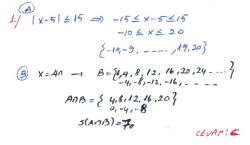 A
1/ |x-5| ≤ 15 ⇒ -15 ≤ x-5 ≤ 15
-10 ≤ x ≤ 20
{-10,-9, ......, 19,20}
B x=4n → B={0,4,8,12,16,20,24 ...
-4,-8,-12,-16, ...
A∩B={4,8,12,16,20}
0,-4,-8
S(A∩B)=
CEVAP: